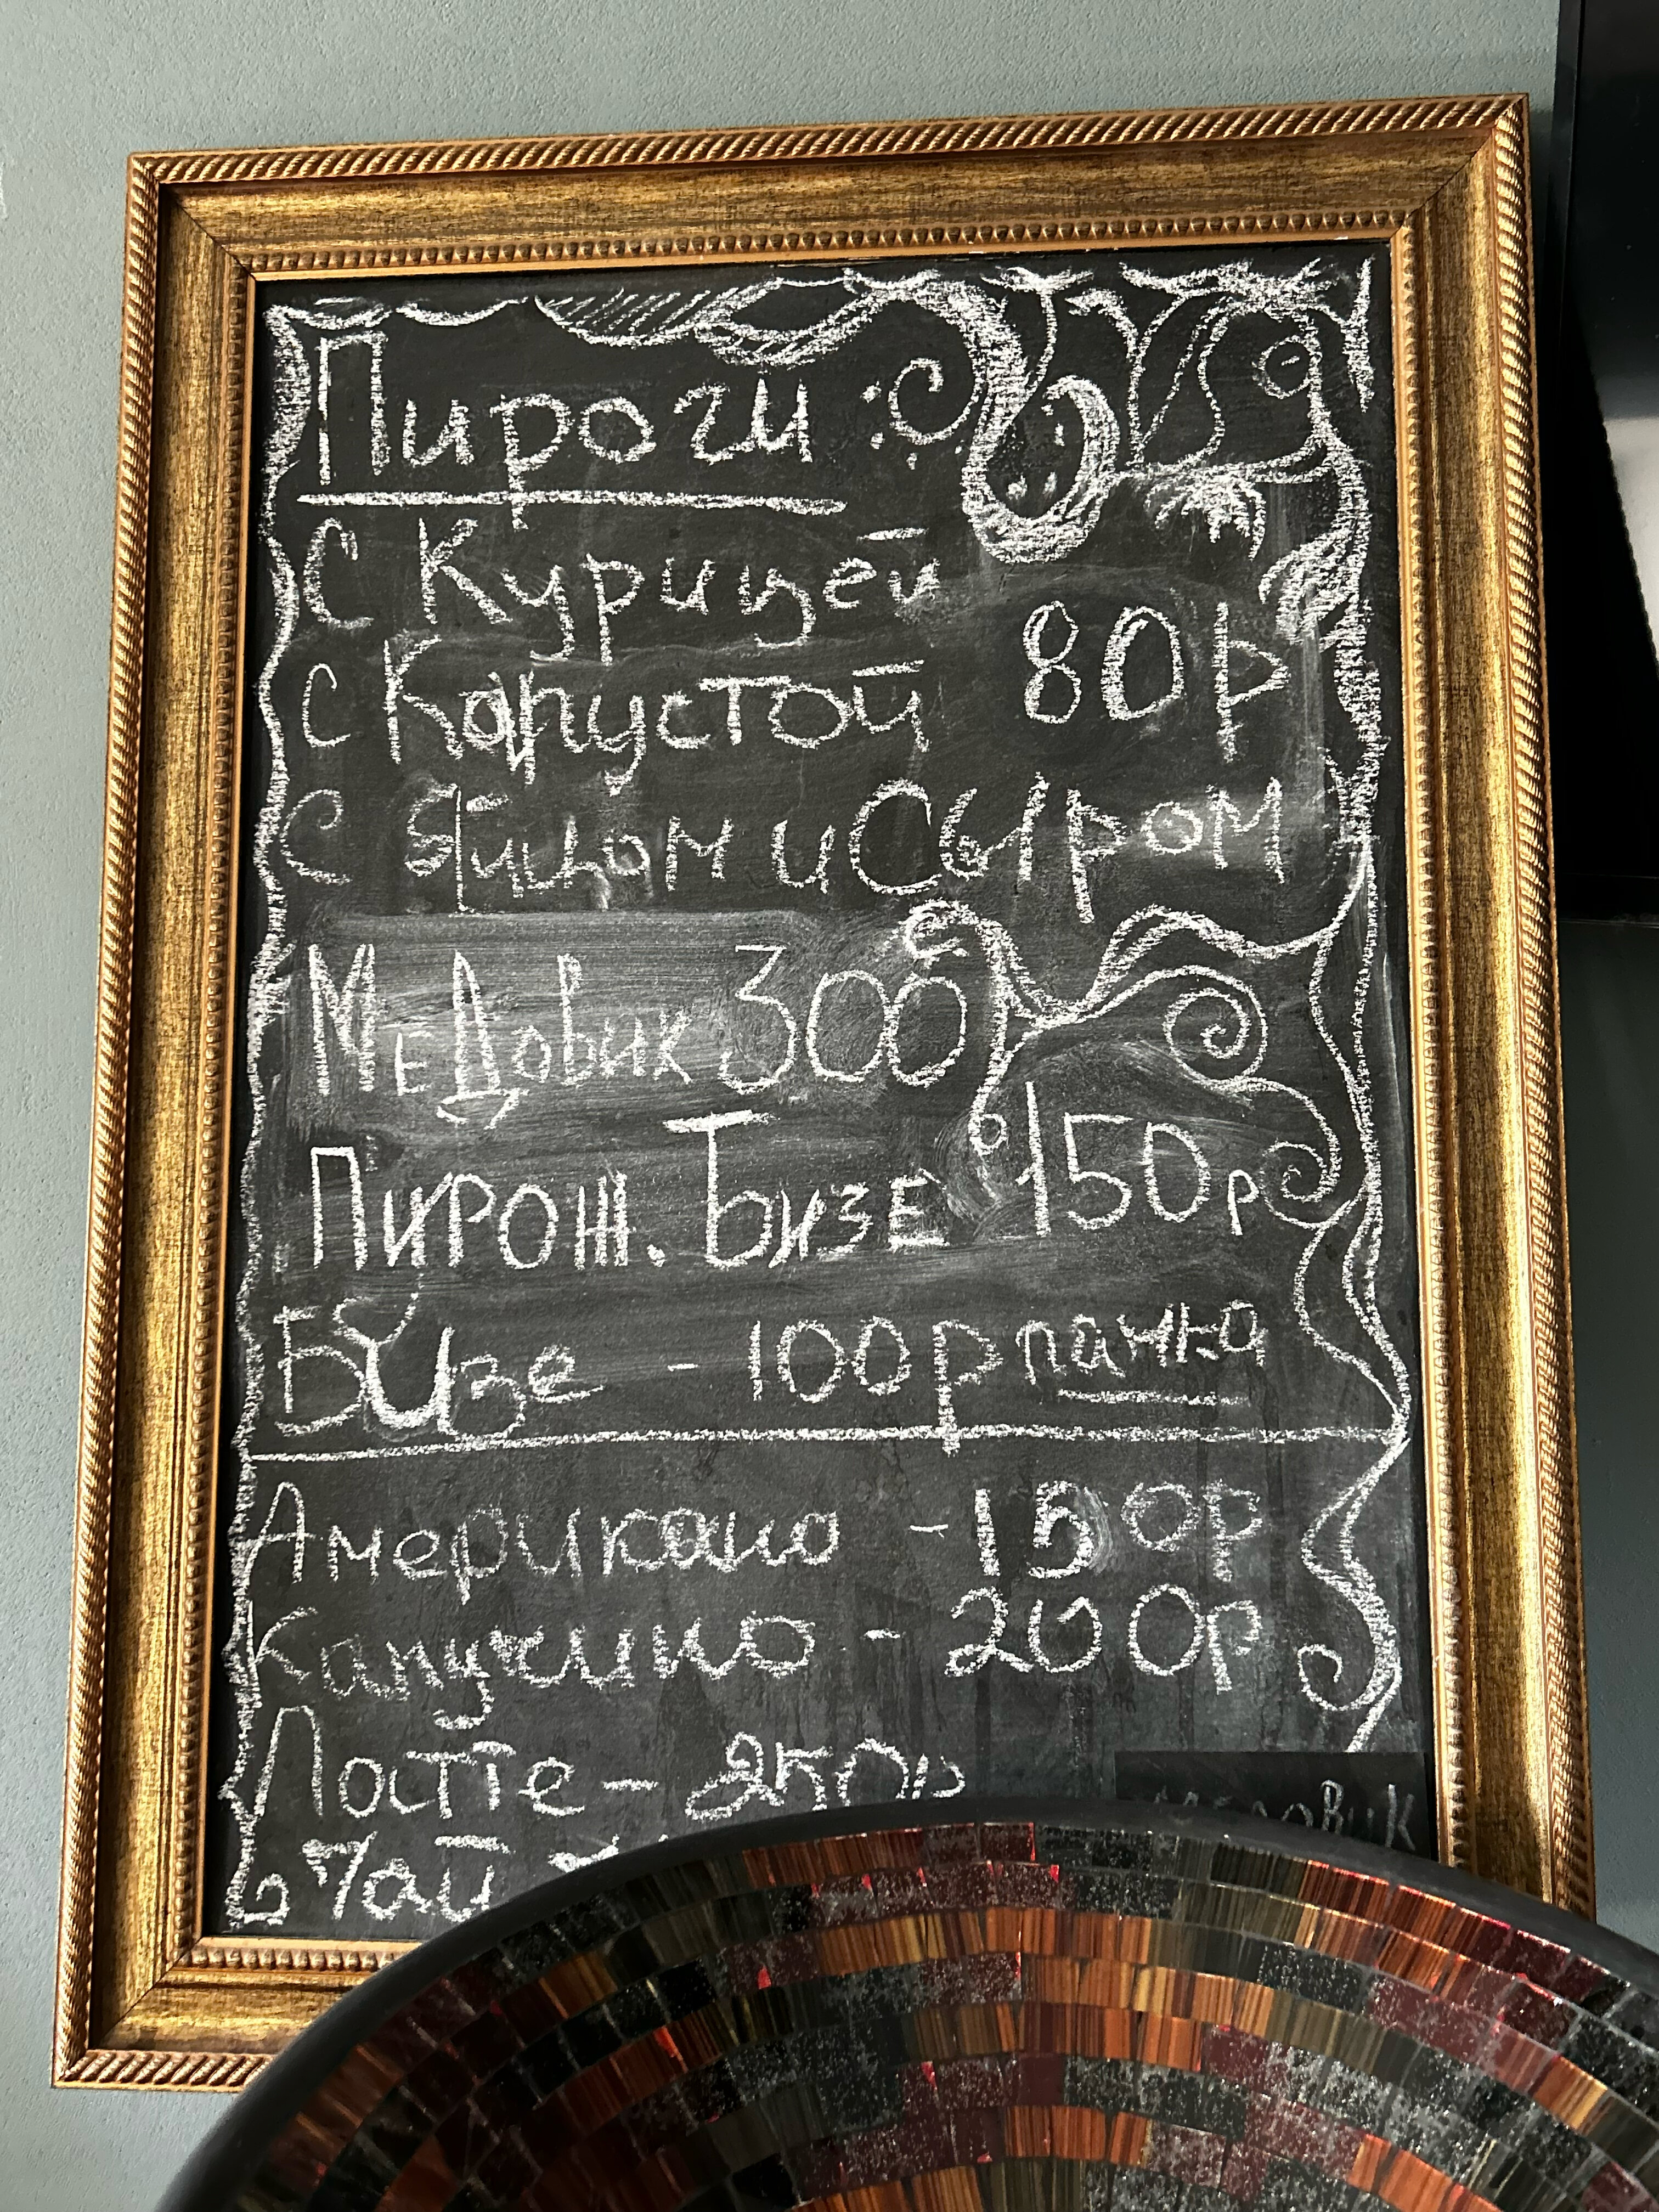 Пироги:
с Курицей
80р
с Капустой
с яйцом и Сыром
Медовик 300
Пирож. Бизе 150р
Бизе - 100р пачка
Американо - 150р
Капучино - 200р
Латте - 250р
Чай
Медовик